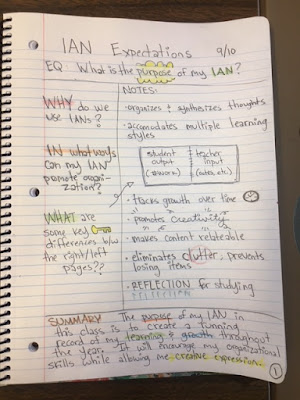 IAN Expectations 9/10
EQ What is the purpose of my IAN?
WHY do we
use IANs?
IN what ways
can my IAN
promote organi-
zation?
WHAT are
some key
differences b/w
the right/left
pages??
NOTES:
•organizes + synthesizes thoughts
•accomodates multiple learning
styles
student
output
(HWork)
teacher
input
(notes, etc)
•tracks growth over time
•promotes creativity
•makes content relateable
•eliminates clutter, prevents
losing items
•REFLECTION for studying
REFLECTION
SUMMARY The purpose of my IAN in
this class is to create a running
record of my learning + growth throughout
the year. It will encourage my organizational
skills while allowing me creative expression.
1